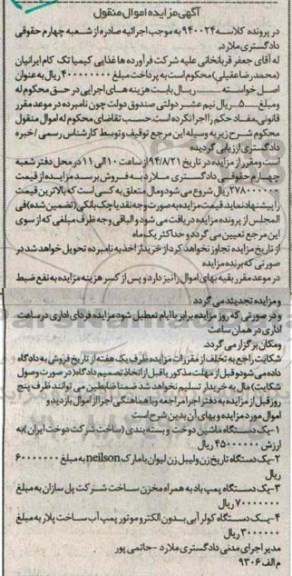 آگهی مزایده اموال منقول
در پرونده کلاسه ۹۴۰۰۲۴ به موجب اجرائیه صادره از شعبه چهارم حقوقی
دادگستری ملارد
له آقای جعفر قربانخانی علیه شرکت فرآورده ها غذایی کیمیا تک کام ایرانیان
(محمدرضا عقیلی) محکوم است به پرداخت مبلغ ۴۰۰۰۰۰۰۰۰ ریال به عنوان
اصل خواسته ......... ریال بابت هزینه های اجرایی در حق محکوم له
و مبلغ ......۵ ریال نیم عشر دولتی صندوق دولت چون نامبرده در موعد مقرر
قانونی مفاد حکم را اجرا نکرده است. حسب تقاضای محکوم له اموال منقول
محکوم شرح زیر به وسیله این مرجع توقیف و توسط کارشناس رسمی / خبره
دادگستری ارزیابی گردیده
است و مقرر از مزایده در تاریخ ۹۴/۸/۲۱ از ساعت ۱۰ الی ۱۱ در محل دفتر شعبه
چهارم حقوقی دادگستری ملارد به فروش برسد مزایده از قیمت
۲۷۸۰۰۰۰۰۰ ریال شروع می شود و مال متعلق به کسی است که بالاترین قیمت
را پیشنهاد نماید قیمت مزایده به صورت وجه نقد یا چک بانکی (تضمین شده) فی
المجلس از برنده مزایده دریافت می شود و الباقی وجه ظرف مبلغی که از سوی
این مرجع تعیین می گردد و حداکثر یک ماه
از تاریخ مزایده تجاوز نخواهد کرد از خریدار اخذ به نامبرده تحویل خواهد شد در
صورتی که برنده مزایده
در موعد مقرر بقیه بهای اموال را نپردازد و پس از کسر هزینه مزایده به نفع ضبط
و مزایده تجدید می گردد.
و در صورتی که روز مزایده برابر با ایام تعطیل شود مزایده فردای اداری در ساعت
اداری در همان ساعت
ومکان برگزار می گردد.
شکایت راجع به تخلف از مقررات مزایده ظرف یک هفته از تاریخ فروش به دادگاه
داده می شود و قبل از مهلت مذکور یا قبل از اتخاذ تصمیم دادگاه (در صورت وصول
شکایت) مال به خریدار تسلیم نخواهد شد ضمنا طالبین می توانند ظرف پنج
روز قبل از مزایده به دفتر اجرا مراجعه و با هماهنگی اجرا از اموال بازدید و
اموال مورد مزایده و بهای آن بدین شرح است
۱-یک دستگاه ماشین دوخت و بسته بندی (ساخت شرکت دوخت ایران) به
ارزش ۴۵۰۰۰۰۰۰ ریال
۲-یک دستگاه تاریخ زن ولیبل زن لیوان با مارک neilson به مبلغ ۶۰۰۰۰۰۰۰
ریال
۳-یک دستگاه پمپ باد به همراه مخزن ساخت شرکت پل سازان به مبلغ
۷۰۰۰۰۰۰ ریال
۴-یک دستگاه کولر آبی بدون الکترو موتور پمپ آب ساخت پلار به مبلغ
۳۰۰۰۰۰۰ ریال
مدیر اجرای مدنی دادگستری ملارد -حاتمی پور
م الف ۹۳۰۶